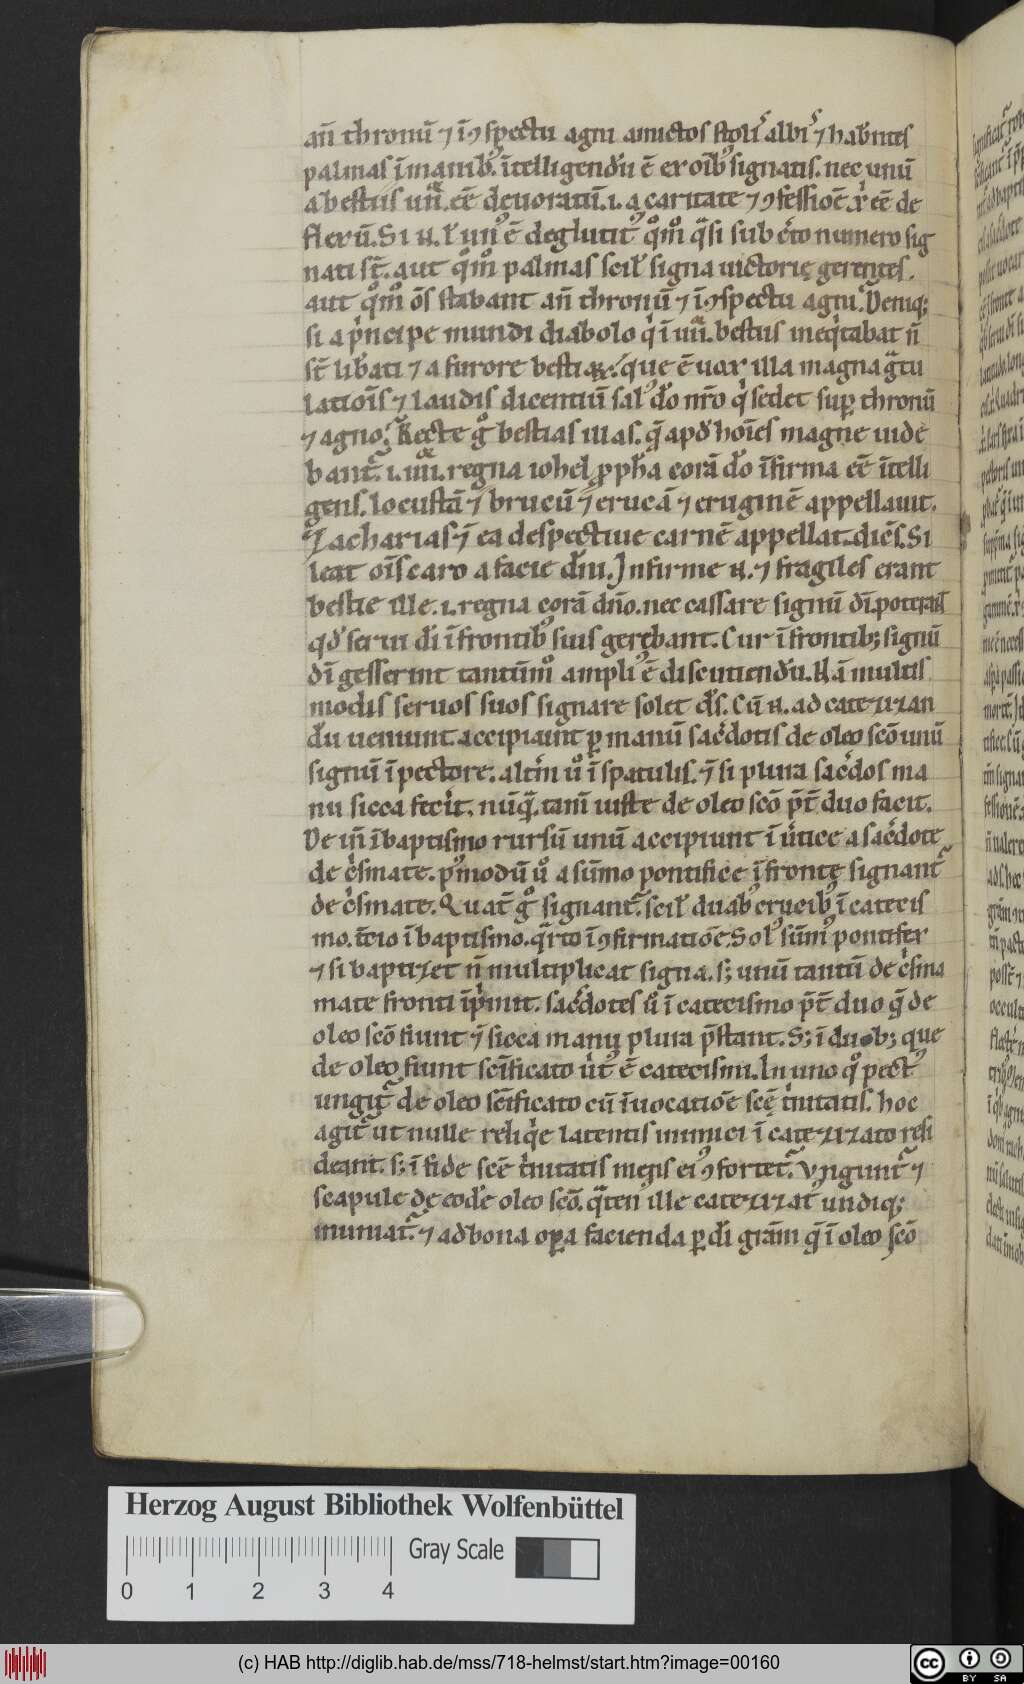 an̄ thronū ⁊ ī ꝯspectu agni amictos stolis albis ⁊ habentes
palmas ī manib; ītelligendū ē ex oīb; signatis. nec unū
a bestiis un̄ eē deuoratū .i. a caritate ⁊ ꝯfessiōe x̄ eē de
flexū. Si n. ł un' ē deglutit' qm̊ q̄si sub c̄to numero sig
nati st̄. aut qm̊ palmas scił signa uictorię gerentes.
aut qm̊ ōs stabant an̄ thronū ⁊ ī ꝯspectu agni. Deniq;
si a p̄ncipe mundi diabolo q̄ ī iiii. bestiis ineq̄tabat n̄
st̄ libati ⁊ a furore bestiaꝝ. que ē uox illa magna g̃tu
latiōis ⁊ laudis dicentiū sal' dō nr̄o q̄ sedet suꝑ thronū
⁊ agno. Recte g̊ bestias illas. q̄ apđ hoīes magne uide
bant̄ .i. iiii. regna iohel ꝓph̄a corā dō īfirma eē ītelli
gens. locustā ⁊ brucū ⁊ erucā ⁊ eruginē appellauit.
Zacharias ⁊ ea despectiue carnē appellat. diēs. Si
leat oīs caro a facie dn̄i. Infirme n. ⁊ fragiles erant
bestie ille .i. regna corā dn̄o. nec cassare signū dī. poterāt
qđ serui dī ī frontib; suis gerebant. Cur ī frontib; signū
dī gesserint tantūm̊ ampli' ē discutiendū. Nā multis
modis seruos suos signare solet ds̄. Cū n. ad catezizan
dū ueniunt accipiunt ꝑ manū sac̄dotis de oleo sc̄o unū
signū ī pectore. altm̄ ů ī spatulis. ⁊ si plura sac̄dos ma
nu sicca fec̄it. nūq̄. tam̄ iuste de oleo sc̄o p̄t̄ duo facit.
De in̄ ī baptismo rursū unū accipiunt ī u̇tice a sac̄dote
de c̄smate. p'modū ů a sūmo pontifice ī fronte signant̄
de c̄smate. Quat̄ g̊ signant̄. scił duab; crucib; ī catecis
mo. t̄cio ī baptismo. q̄rto ī ꝯfirmatiōe. Sol' sūm' pontifex
⁊ si baptizet n̄ multiplicat signa. s; unū tantū de c̄sma
mate fronti īp̄mit. sac̄dotes ů ī catecismo p̄t̄ duo q̄ de
oleo sc̄o fiunt ⁊ sicca manu plura p̄stant. S; ī duob; que
de oleo fiunt sc̄ificato u̇t' ē catecismi. In uno q̊ pect'
ungit̄ de oleo sc̄ificato cū īuocatiōe sc̄ę t̄nitatis. hoc
agit̄ ut nulle reliq̄e latentis inimici ī catezizato resi
deant. s; ī fide sc̄ē t̄nitatis mens ei' ꝯfortet̄. Ungunt̄ ⁊
scapule de eodē oleo sc̄o. q̄ten' ille catezizat' undiq;
muniat̄. ⁊ ad bona oꝑa facienda ꝑ dī grām q̄ ī oleo sc̄o
Herzog August Bibliothek Wolfenbüttel
Gray Scale
0 1 2 3 4
(c) HAB http://diglib.hab.de/mss/718-helmst/start.htm?image=00160
cc BY SA